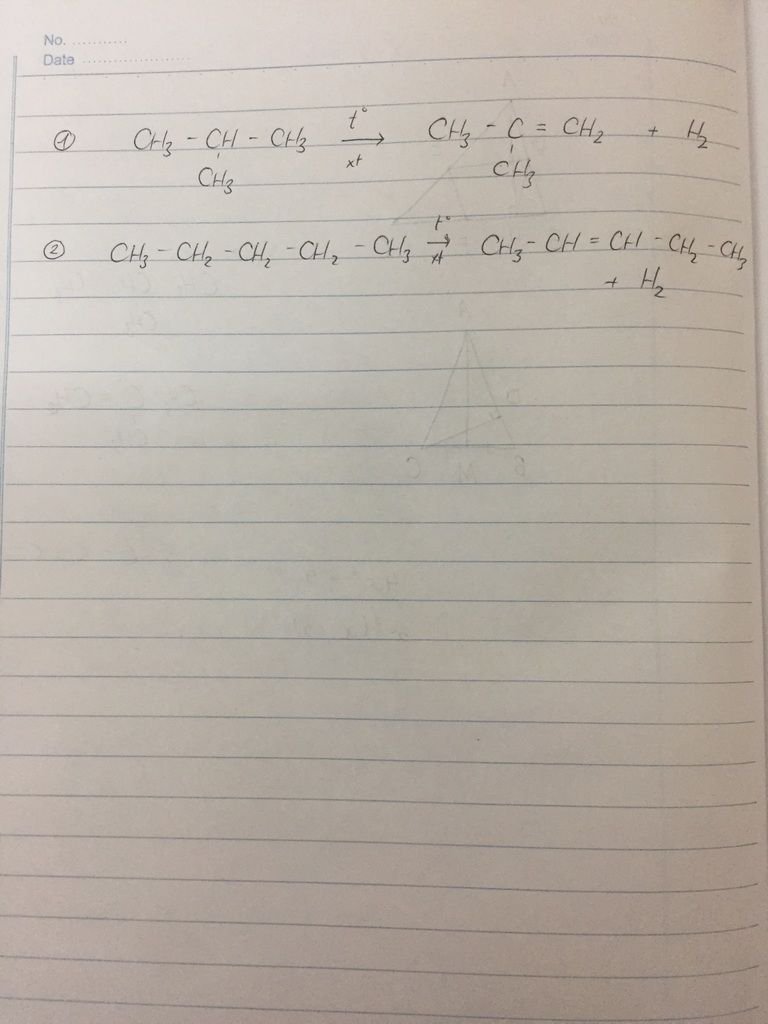 No. ...........
Date ......................
① CH₃ - CH - CH₃ $\xrightarrow[xt]{t°}$ CH₃ - C = CH₂ + H₂
CH₃ CH₃
② CH₃ - CH₂ - CH₂ - CH₂ - CH₃ $\xrightarrow[xt]{t°}$ CH₃ - CH = CH - CH₂ - CH₃
+ H₂
A
C M B